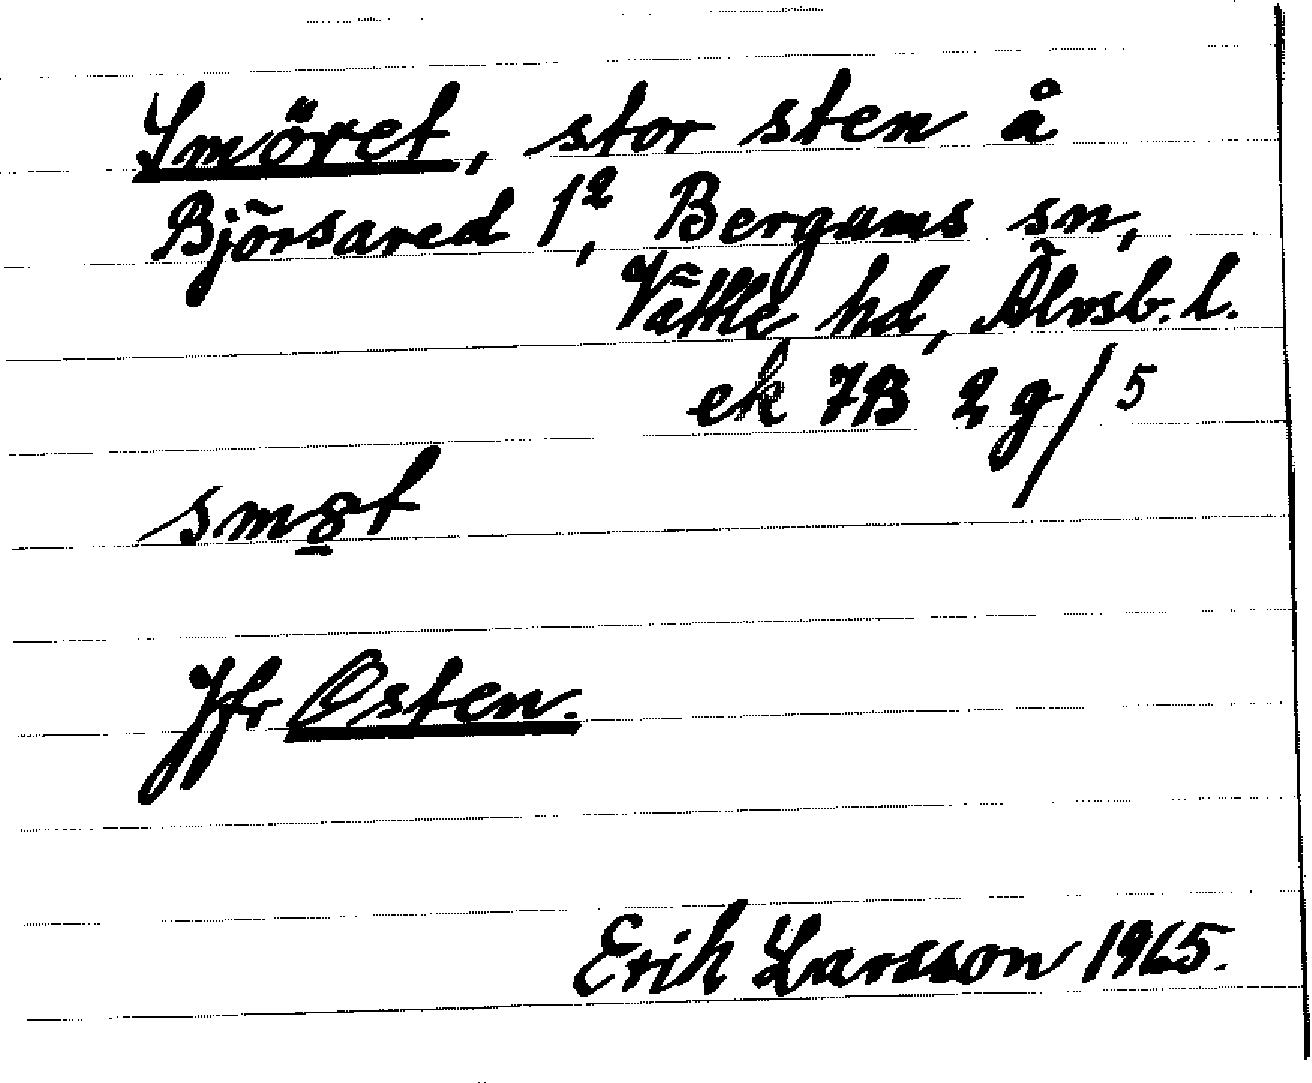 Smöret, stor sten å
Björsared 1², Bergums sn,
Vättle hd, Älvsb. l.
ek 7B 2 g/5
smȣ̱t
Jfr Osten.
Erik Larsson 1965.